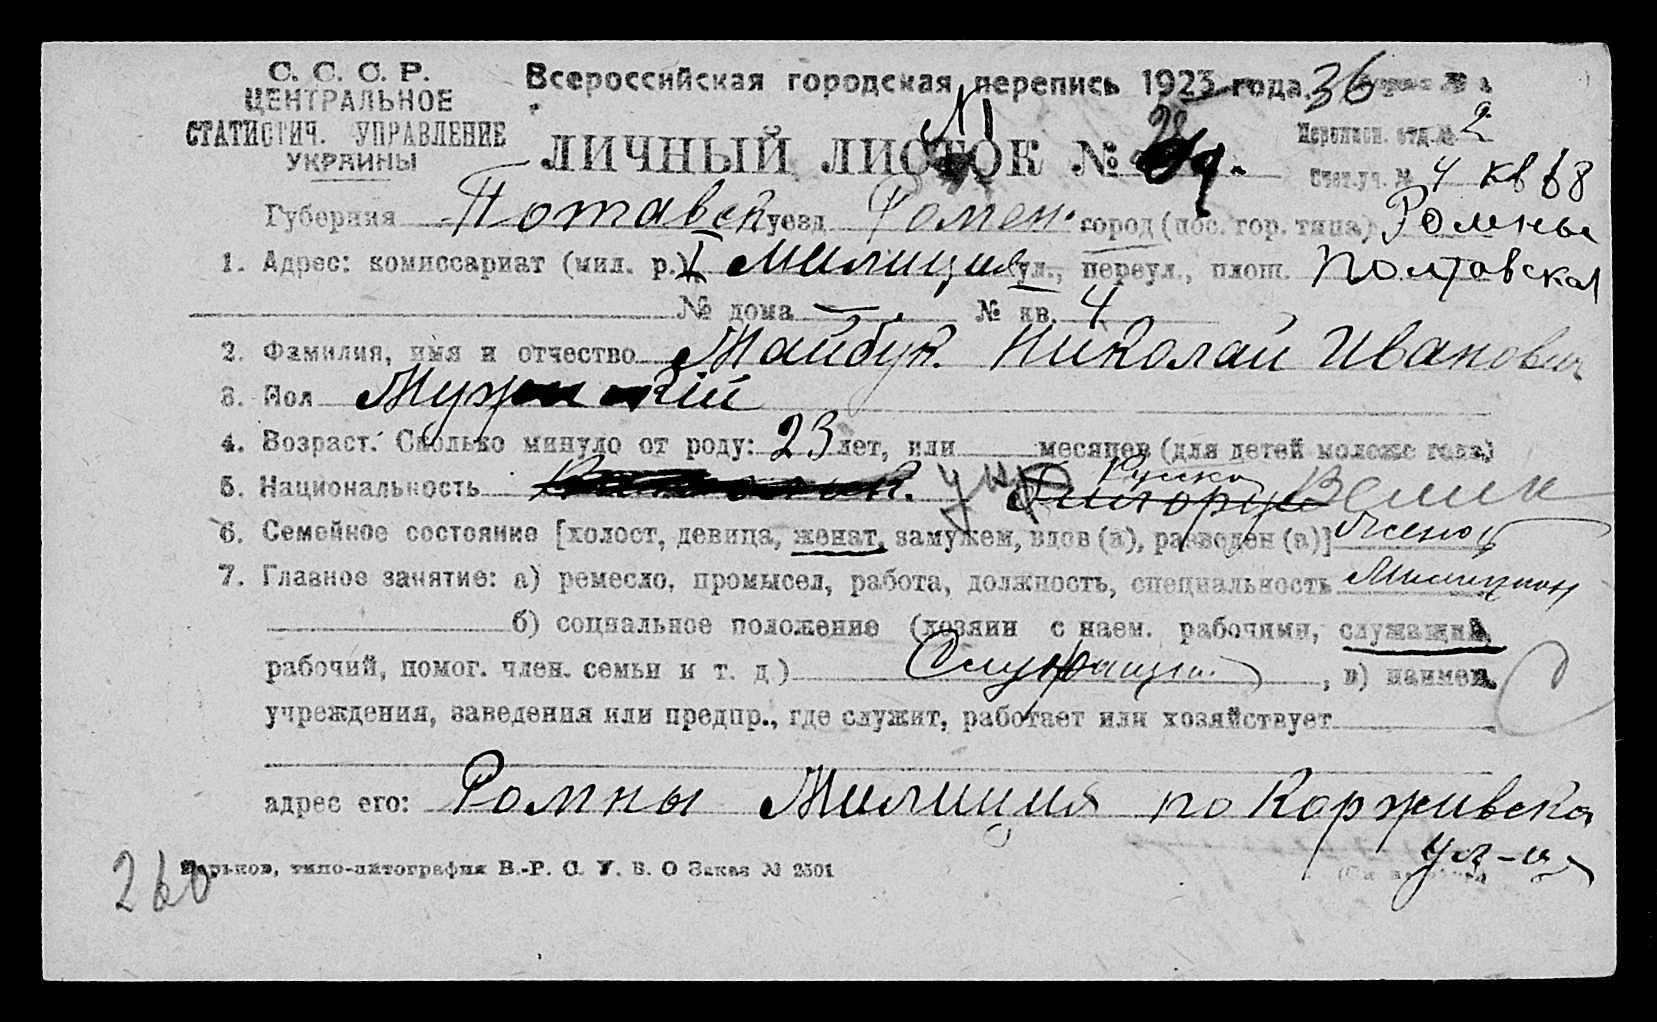 С. С. С. Р.
ЦЕНТРАЛЬНОЕ
СТАТИСТИЧ. УПРАВЛЕНИЕ
УКРАИНЫ
Всероссийская городская перепись 1923 года. 36
Переписн. отд. № 2
ЛИЧНЫЙ ЛИСТОК №
Счет. уч. № 4 кв 68
Губерния Потавск уезд Ромен. город (пос. гор. типа) Ромны
1. Адрес: комиссариат (мил. р.) I Милиция ул., переул., площ. Полтавская
№ дома — № кв. 4
2. Фамилия, имя и отчество Майбук. Николай Иванович
3. Пол Мужский
4. Возраст. Сколько минуло от роду: 23 лет, или месяцев (для детей моложе года)
5. Национальность укр Русск Велик
6. Семейное состояние [холост, девица, женат, замужем, вдов (а), разведен (а)] Женат
7. Главное занятие: а) ремесло, промысел, работа, должность, специальность Милицион
б) социальное положение (хозяин с наем. рабочими, служащий,
рабочий, помог. член. семьи и т. д) Служащий , в) наимен.
учреждения, заведения или предпр., где служит, работает или хозяйствует
адрес его: Ромны Милиция по Корживска
ул-ц
260
Харьков, типо-литография В.-Р. С. У. В. О Заказ № 2501